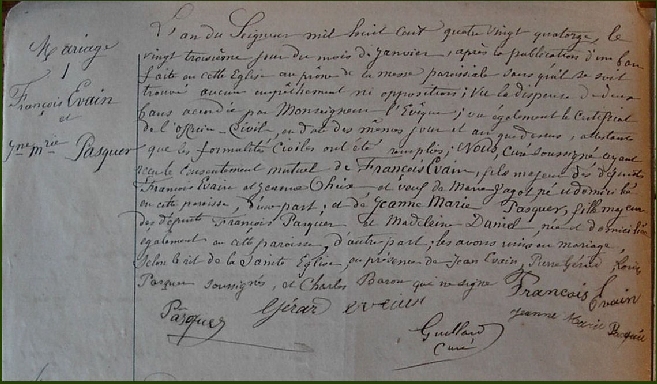 Mariage
1
François Evain
et
Jne Mrie Pasquer
L'an du Seigneur mil huit cent quatre vingt quatorze, le
vingt troisième jour du mois de Janvier, après la publication d'un ban
faite en cette Eglise au prone de la messe paroissiale sans qu'il se soit
trouvé aucun empêchement ni opposition; Vu la dispense de deux
bans accordée par Monseigneur l'Evêque; vu également le Certificat
de l'Officier Civil, en date des mêmes jour et an que dessus, attestant
que les formalités Civiles ont été remplies; Nous, curé soussigné ayant
reçu le consentement mutuel de François Evain, fils majeur des défunts
François Evain et Jeanne et veuf de Marie Jagot né et domicilié
en cette paroisse, d'une part, et de Jeanne Marie Pasquer, fille majeure
des défunts François Pasquer et Madeleine Daniel née et domiciliée
également en cette paroisse, d'autre part, les avons unis en mariage
selon le rit de la Sainte Eglise, en présence de Jean Evain, Pierre Gérard,
Pasquer soussignés, et Charles Baron qui ne signe
François Evain
Pasquer Gérard evain
Jeanne Marie Pasquer
Guillard
Curé